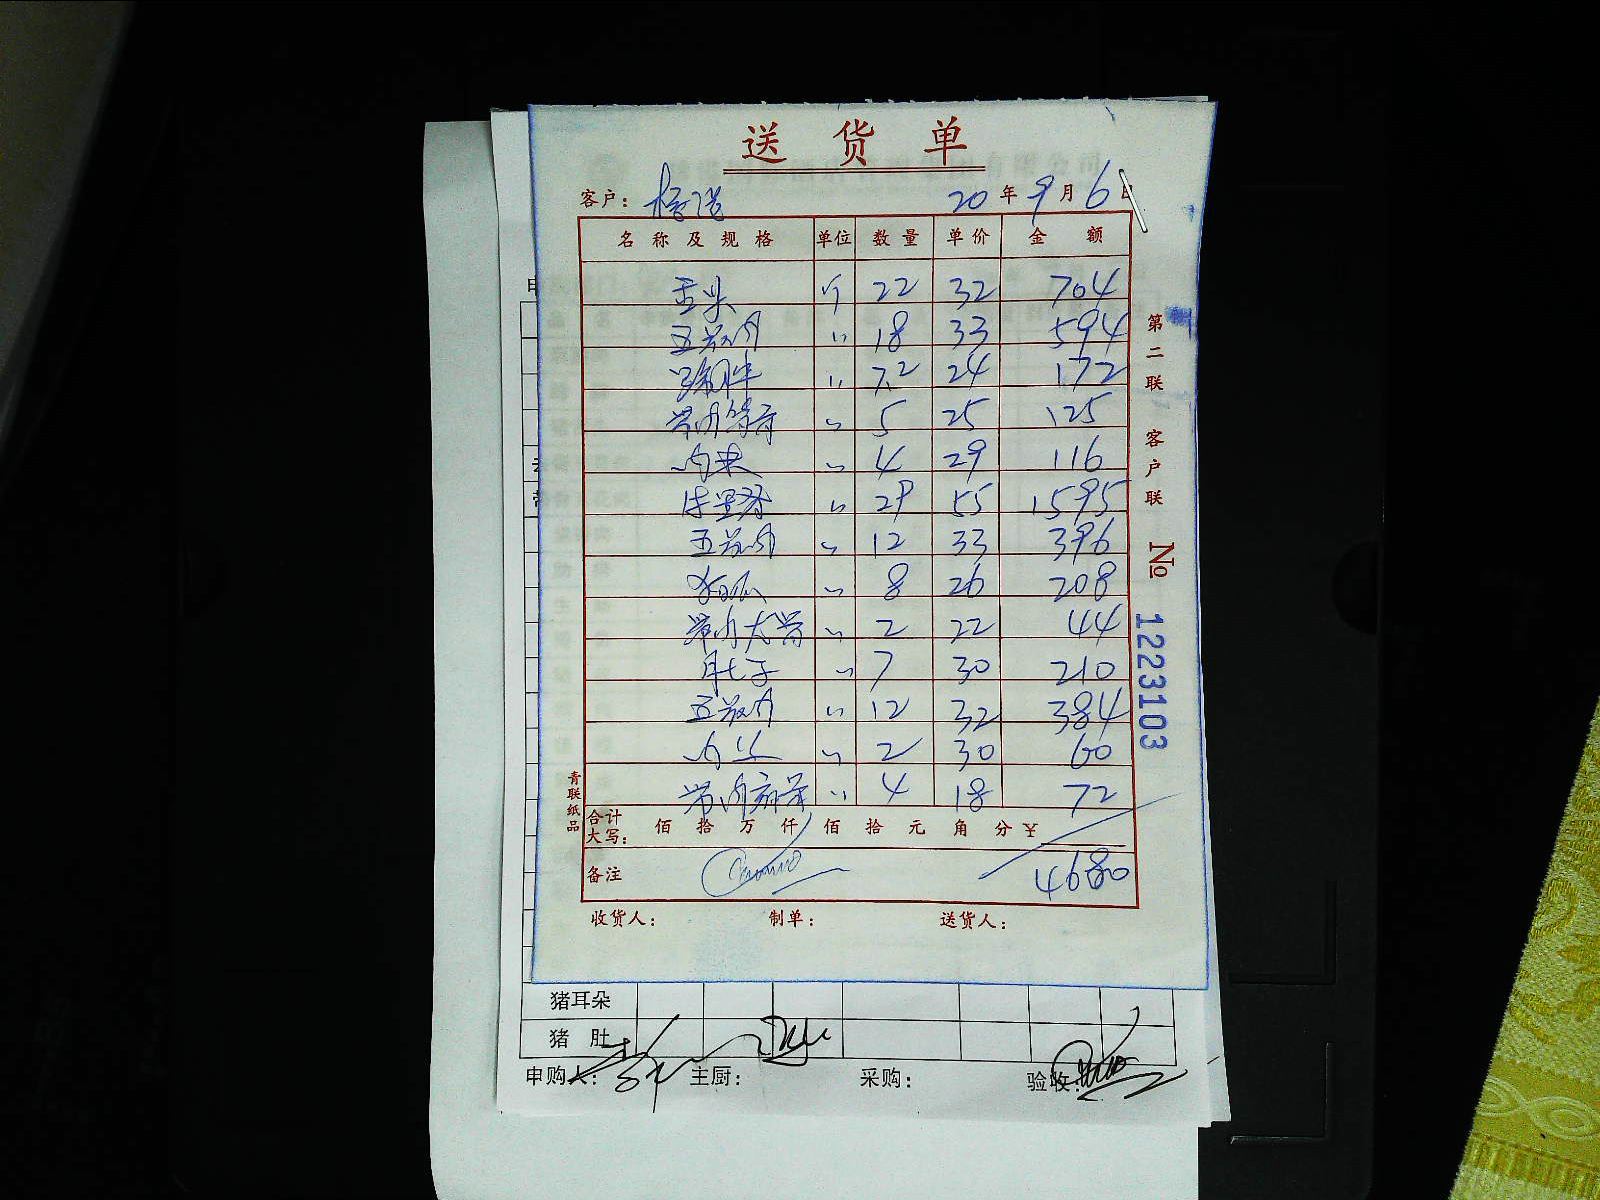 送货单
客户: 20年9月6日
名称及规格 单位 数量 单价 金额
舌头 个 22 32 704
五花肉 〃 18 33 594
〃 7.2 24 172
带肉 〃 5 25 125
肉 〃 4 29 116
〃 29 55 1595
五花肉 〃 12 33 396
〃 8 26 208
带肉大骨 〃 2 22 44
肚子 〃 7 30 210
五花肉 〃 12 32 384
肉 〃 2 30 60
带肉 〃 4 18 72
合计大写: 佰 拾 万 仟 佰 拾 元 角 分 ¥
备注 4680
收货人: 制单: 送货人:
青联纸品
第二联 客户联 № 1223103
猪耳朵
猪 肚
申购人: 主厨: 采购: 验收: